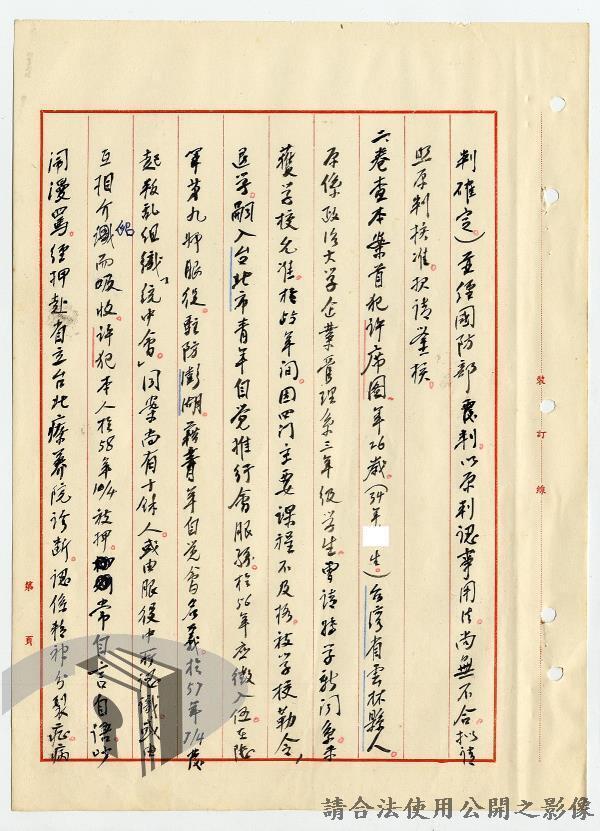 判確定）並經國防部覆判以原判認事用法尚無不合。擬請
照原判核准。謹請鑒核。
二、卷查本案首犯許席圖，年26歲（34年 生）台灣省雲林縣人。
原係政治大學企業管理系三年級學生。曾請轉學新聞系未
獲學校允准。於55年間因四門主要課程不及格，被學校勒令
退學。嗣入台北市青年自覺推行會服務。於56年應徵入伍在陸
軍第九師服役。駐防澎湖。藉青年自覺會名義。於57年7/4發
起叛乱組織「統中會」同案尚有十餘人。或由服役中所認識，或由
互相介紹而吸收。許犯本人於58年10/4被押。常自言自語吵
鬧漫罵。經押赴省立台北療養院診斷。認係精神分裂症病
裝 訂 線
第 頁
請合法使用公開之影像